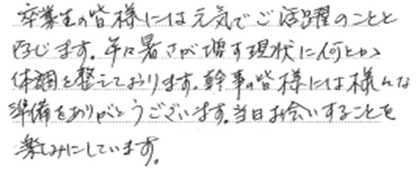 卒業生の皆様には元気でご活躍のことと
存じます。年々暑さが増す現状に何とか
体調を整えております。幹事の皆様には様々な
準備をありがとうございます。当日お会いすることを
楽しみにしています。